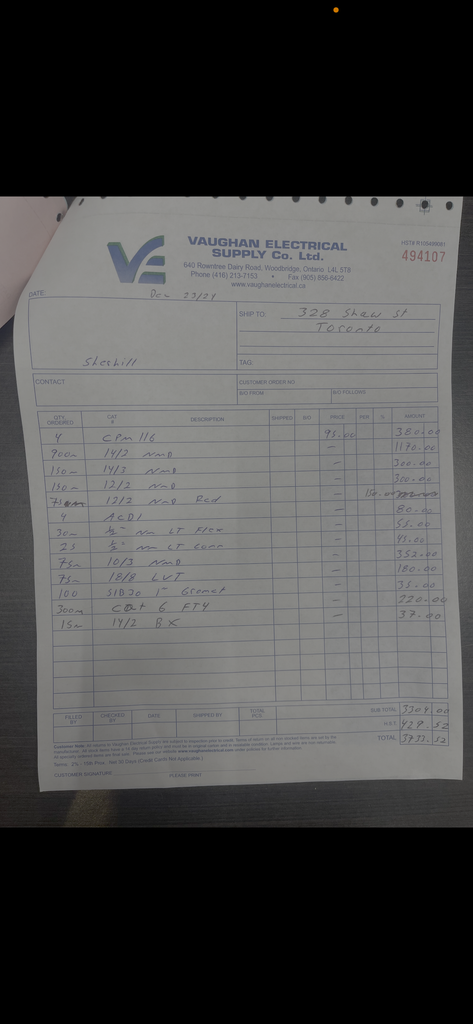 VE
VAUGHAN ELECTRICAL
SUPPLY Co. Ltd.
640 Rowntree Dairy Road, Woodbridge, Ontario L4L 5T8
Phone (416) 213-7153 • Fax (905) 856-6422
www.vaughanelectrical.ca
494107
DATE: Dec 23/24
SHIP TO: 328 Shaw St
Toronto
TAG:
CONTACT
CUSTOMER ORDER NO
B/O FROM B/O FOLLOWS
QTY. ORDERED CAT # DESCRIPTION SHIPPED B/O PRICE PER % AMOUNT
4 CPM 116 95.00 380.00
900m 14/2 NMD — 1170.00
150m 14/3 NMD — 300.00
150m 12/2 NMD — 300.00
75m 12/2 NMD Red — 150.00
4 ACD1 — 80.00
30m ½" NM LT Flex — 55.00
25 ½" NM LT Conn — 45.00
75m 10/3 NMD — 352.00
75m 18/8 LVT — 180.00
100 SIBJO 1" Gromet — 35.00
300m Cat 6 FT4 — 220.00
15m 14/2 BX — 37.00
FILLED BY CHECKED BY DATE SHIPPED BY TOTAL PCS.
SUB TOTAL 3304.00
H.S.T. 429.52
TOTAL 3733.52
CUSTOMER SIGNATURE PLEASE PRINT